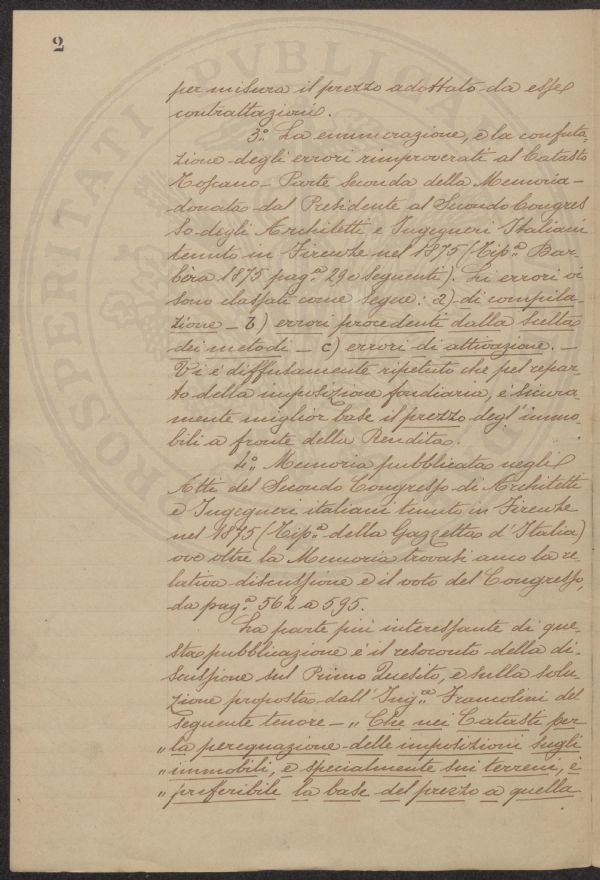 2
PROSPERITATI PVBLICAE
per misura il prezzo adottato da esse
contrattazioni.
3.° La enumerazione, e la confuta-
zione degli errori rimproverati al Catasto
Toscano - Parte Seconda della Memoria -
donata dal Presidente al Secondo Congres
so degli Architetti e Ingegneri Italiani
tenuto in Firenze nel 1875 (Tip.ª Bar-
bèra 1875 pag.ª 29 e seguenti). Li errori vi
sono classati come segue: a) di compila-
zione - b) errori procedenti dalla scelta
dei metodi - c) errori di attivazione. -
Vi è diffusamente ripetuto che pel repar
to della imposizione fondiaria, è sicura-
mente miglior base il prezzo degl'immo-
bili a fronte della Rendita.
4.° Memoria pubblicata negli
Atti del Secondo Congresso di Architetti
e Ingegneri italiani tenuto in Firenze
nel 1875 (Tip.ª della Gazzetta d'Italia)
ove oltre la Memoria trovasi anco la re-
lativa discussione e il voto del Congresso,
da pag.ª 562 a 595.
La parte più interessante di que-
sta pubblicazione è il resoconto della di-
scussione sul Primo Quesito, e sulla solu-
zione proposta dall'Ing.re Francolini del
seguente tenore - „ Che nei Catasti per
„ la perequazione delle imposizioni sugli
„ immobili, e specialmente sui terreni, è
„ preferibile la base del prezzo a quella